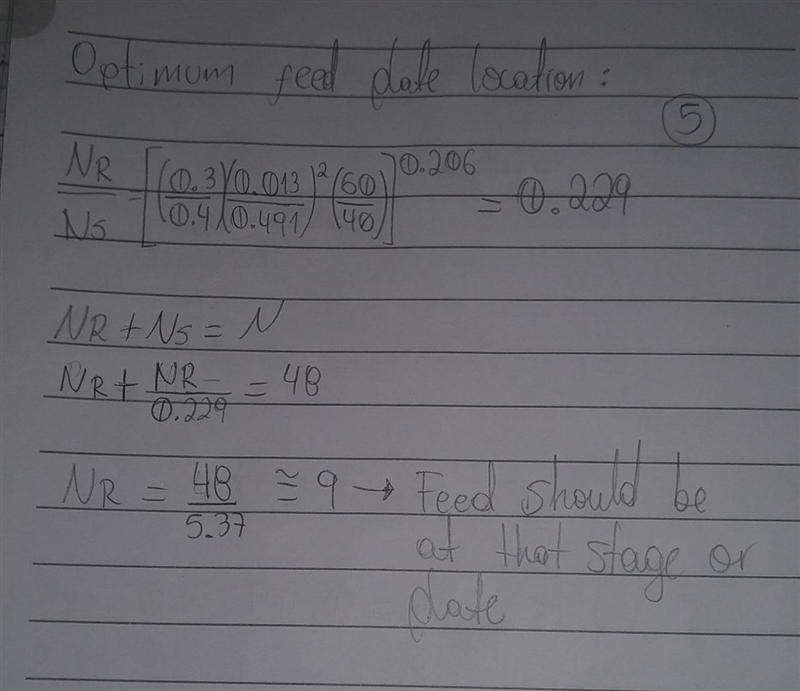 Optimum feed date location:
5
NR/NS = [(0.3/0.4)(0.013/0.491)²(60/40)]^0.206 = 0.229
NR + NS = N
NR + NR/0.229 = 48
NR = 48/5.37 ≅ 9 → Feed should be
at that stage or
date